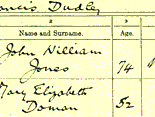 ancis Dudley
2
3
Name and Surname.
Age.
John William
Jones
74
Mary Elizabeth
Doman
52